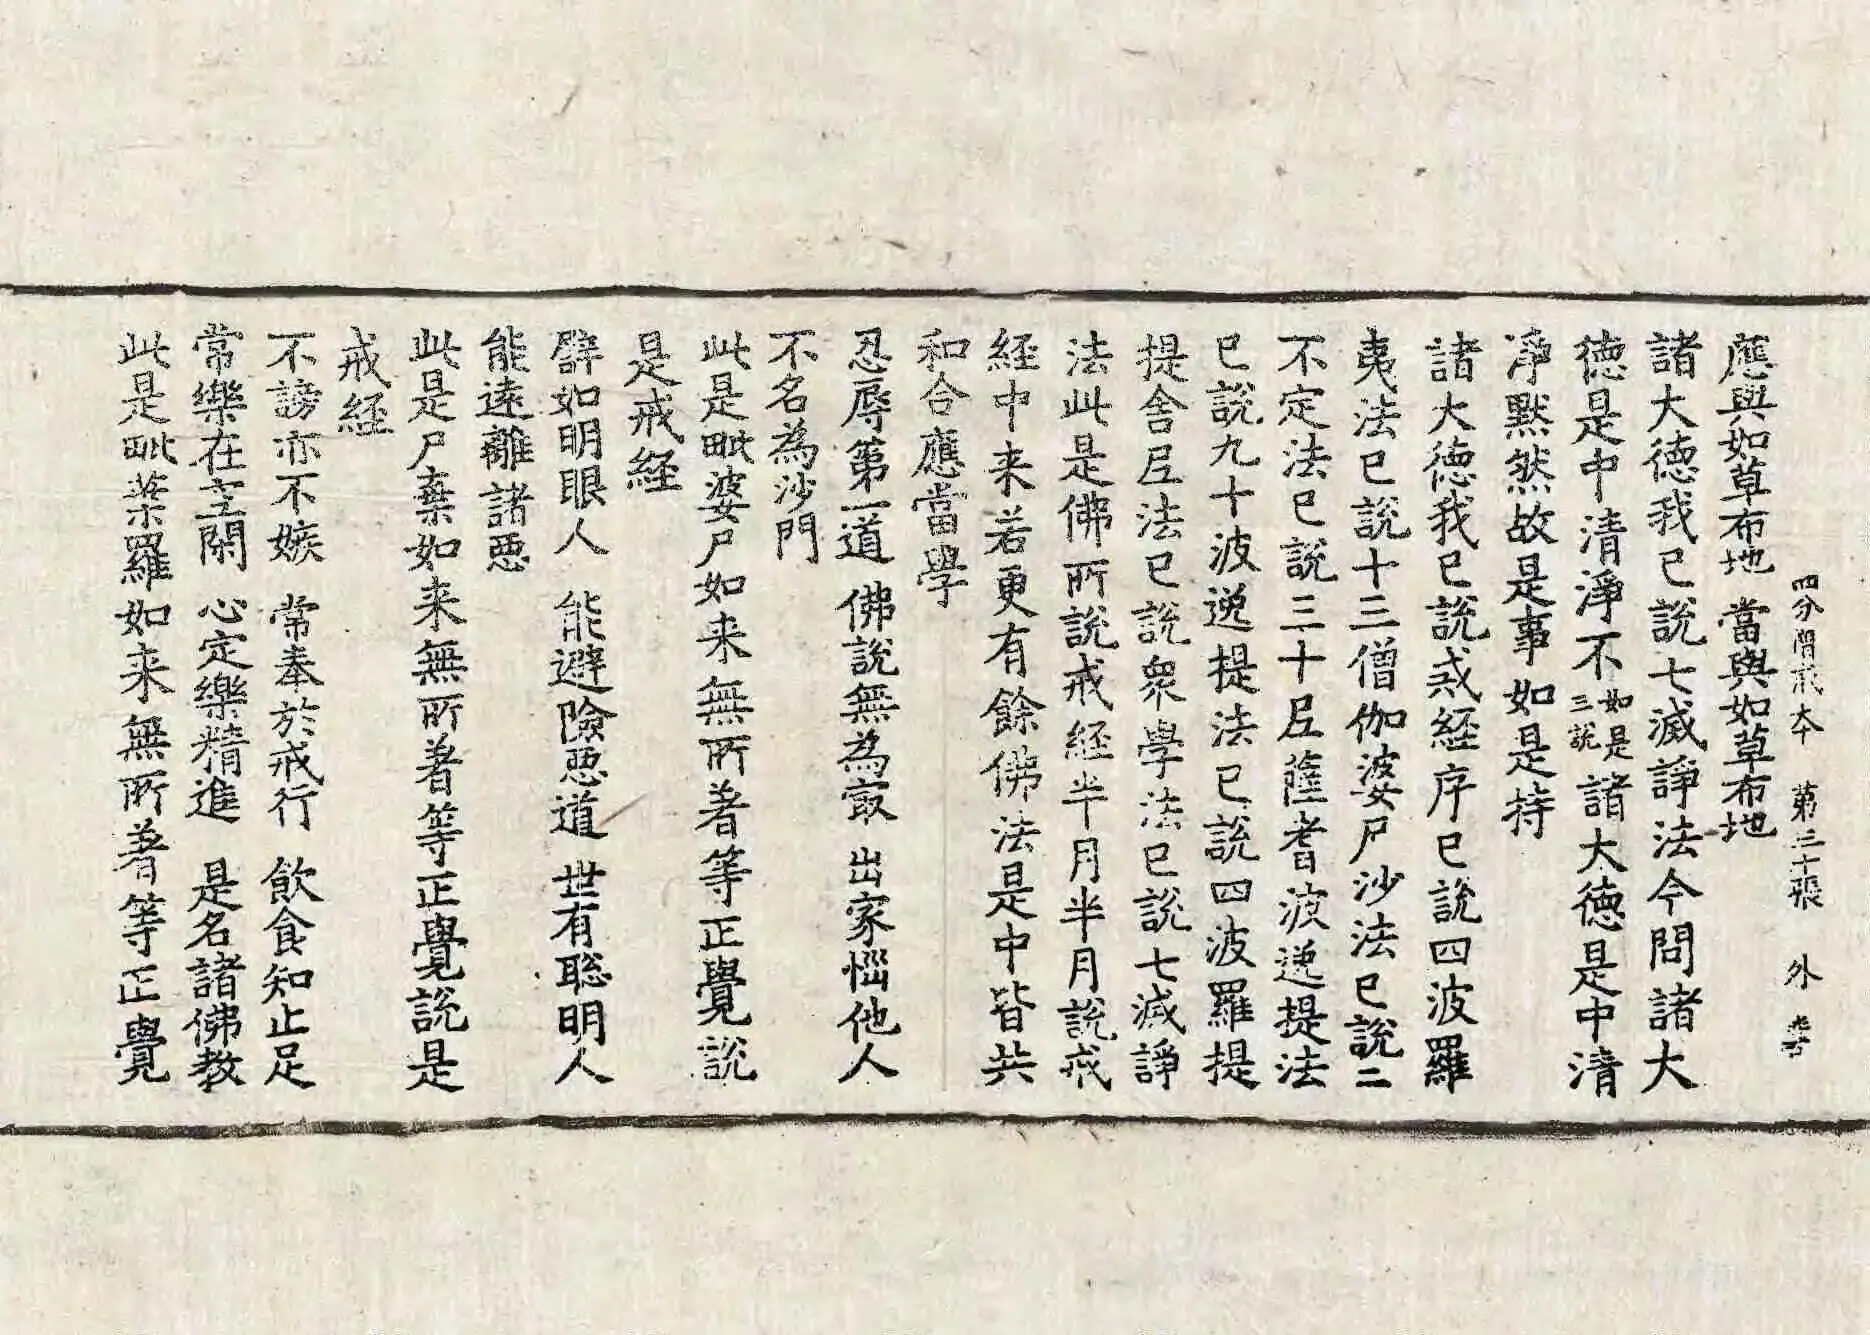 四分僧戒本　第三十張　外
應與如草布地　當與如草布地
諸大德我已說七滅諍法今問諸大
德是中清淨不如是三說諸大德是中清
淨默然故是事如是持
諸大德我已說戒経序已說四波羅
夷法已說十三僧伽婆尸沙法已說二
不定法已說三十尼薩耆波逸提法
已說九十波逸提法已說四波羅提
提舍尼法已說衆學法已說七滅諍
法此是佛所說戒経半月半月說戒
経中来若更有餘佛法是中皆共
和合應當學
忍辱第一道　佛說無為冣　出家惱他人
不名為沙門
此是毗婆尸如来無所著等正覺說
是戒経
譬如明眼人　能避險惡道　世有聡明人
能遠離諸惡
此是尸棄如来無所著等正覺說是
戒経
不謗亦不嫉　常奉於戒行　飲食知止足
常樂在空閑　心定樂精進　是名諸佛教
此是毗葉羅如来無所著等正覺